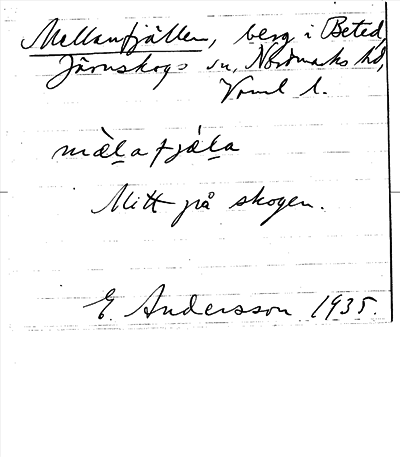 Mellanfjällen, berg i Beted,
Järnskogs sn, Nordmarks hd,
Vrml l.
mäḻa fjäḻa
Mitt på skogen.
E. Andersson 1935.